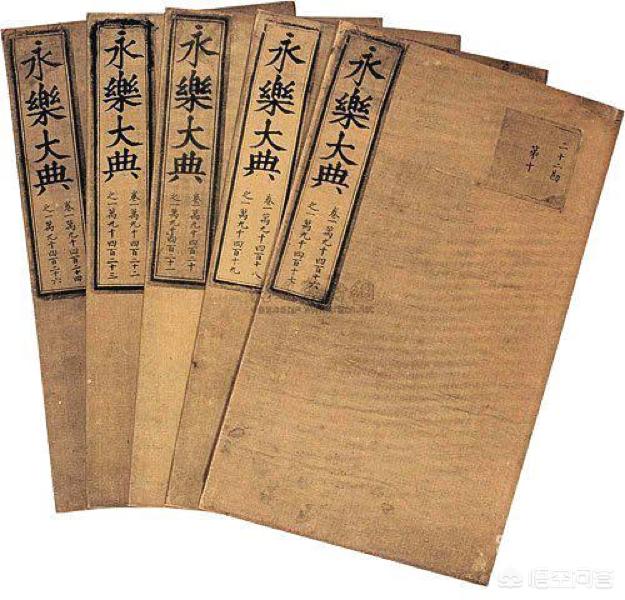 二十二勘
第十
永樂大典
卷一萬九千四百十六
之一萬九千四百十七
永樂大典
卷一萬九千四百十八
之一萬九千四百十九
永樂大典
卷一萬九千四百二十
之一萬九千四百二十一
永樂大典
卷一萬九千四百二十二
之一萬九千四百二十三
永樂大典
卷一萬九千四百二十四
之一萬九千四百二十六
悟空问答